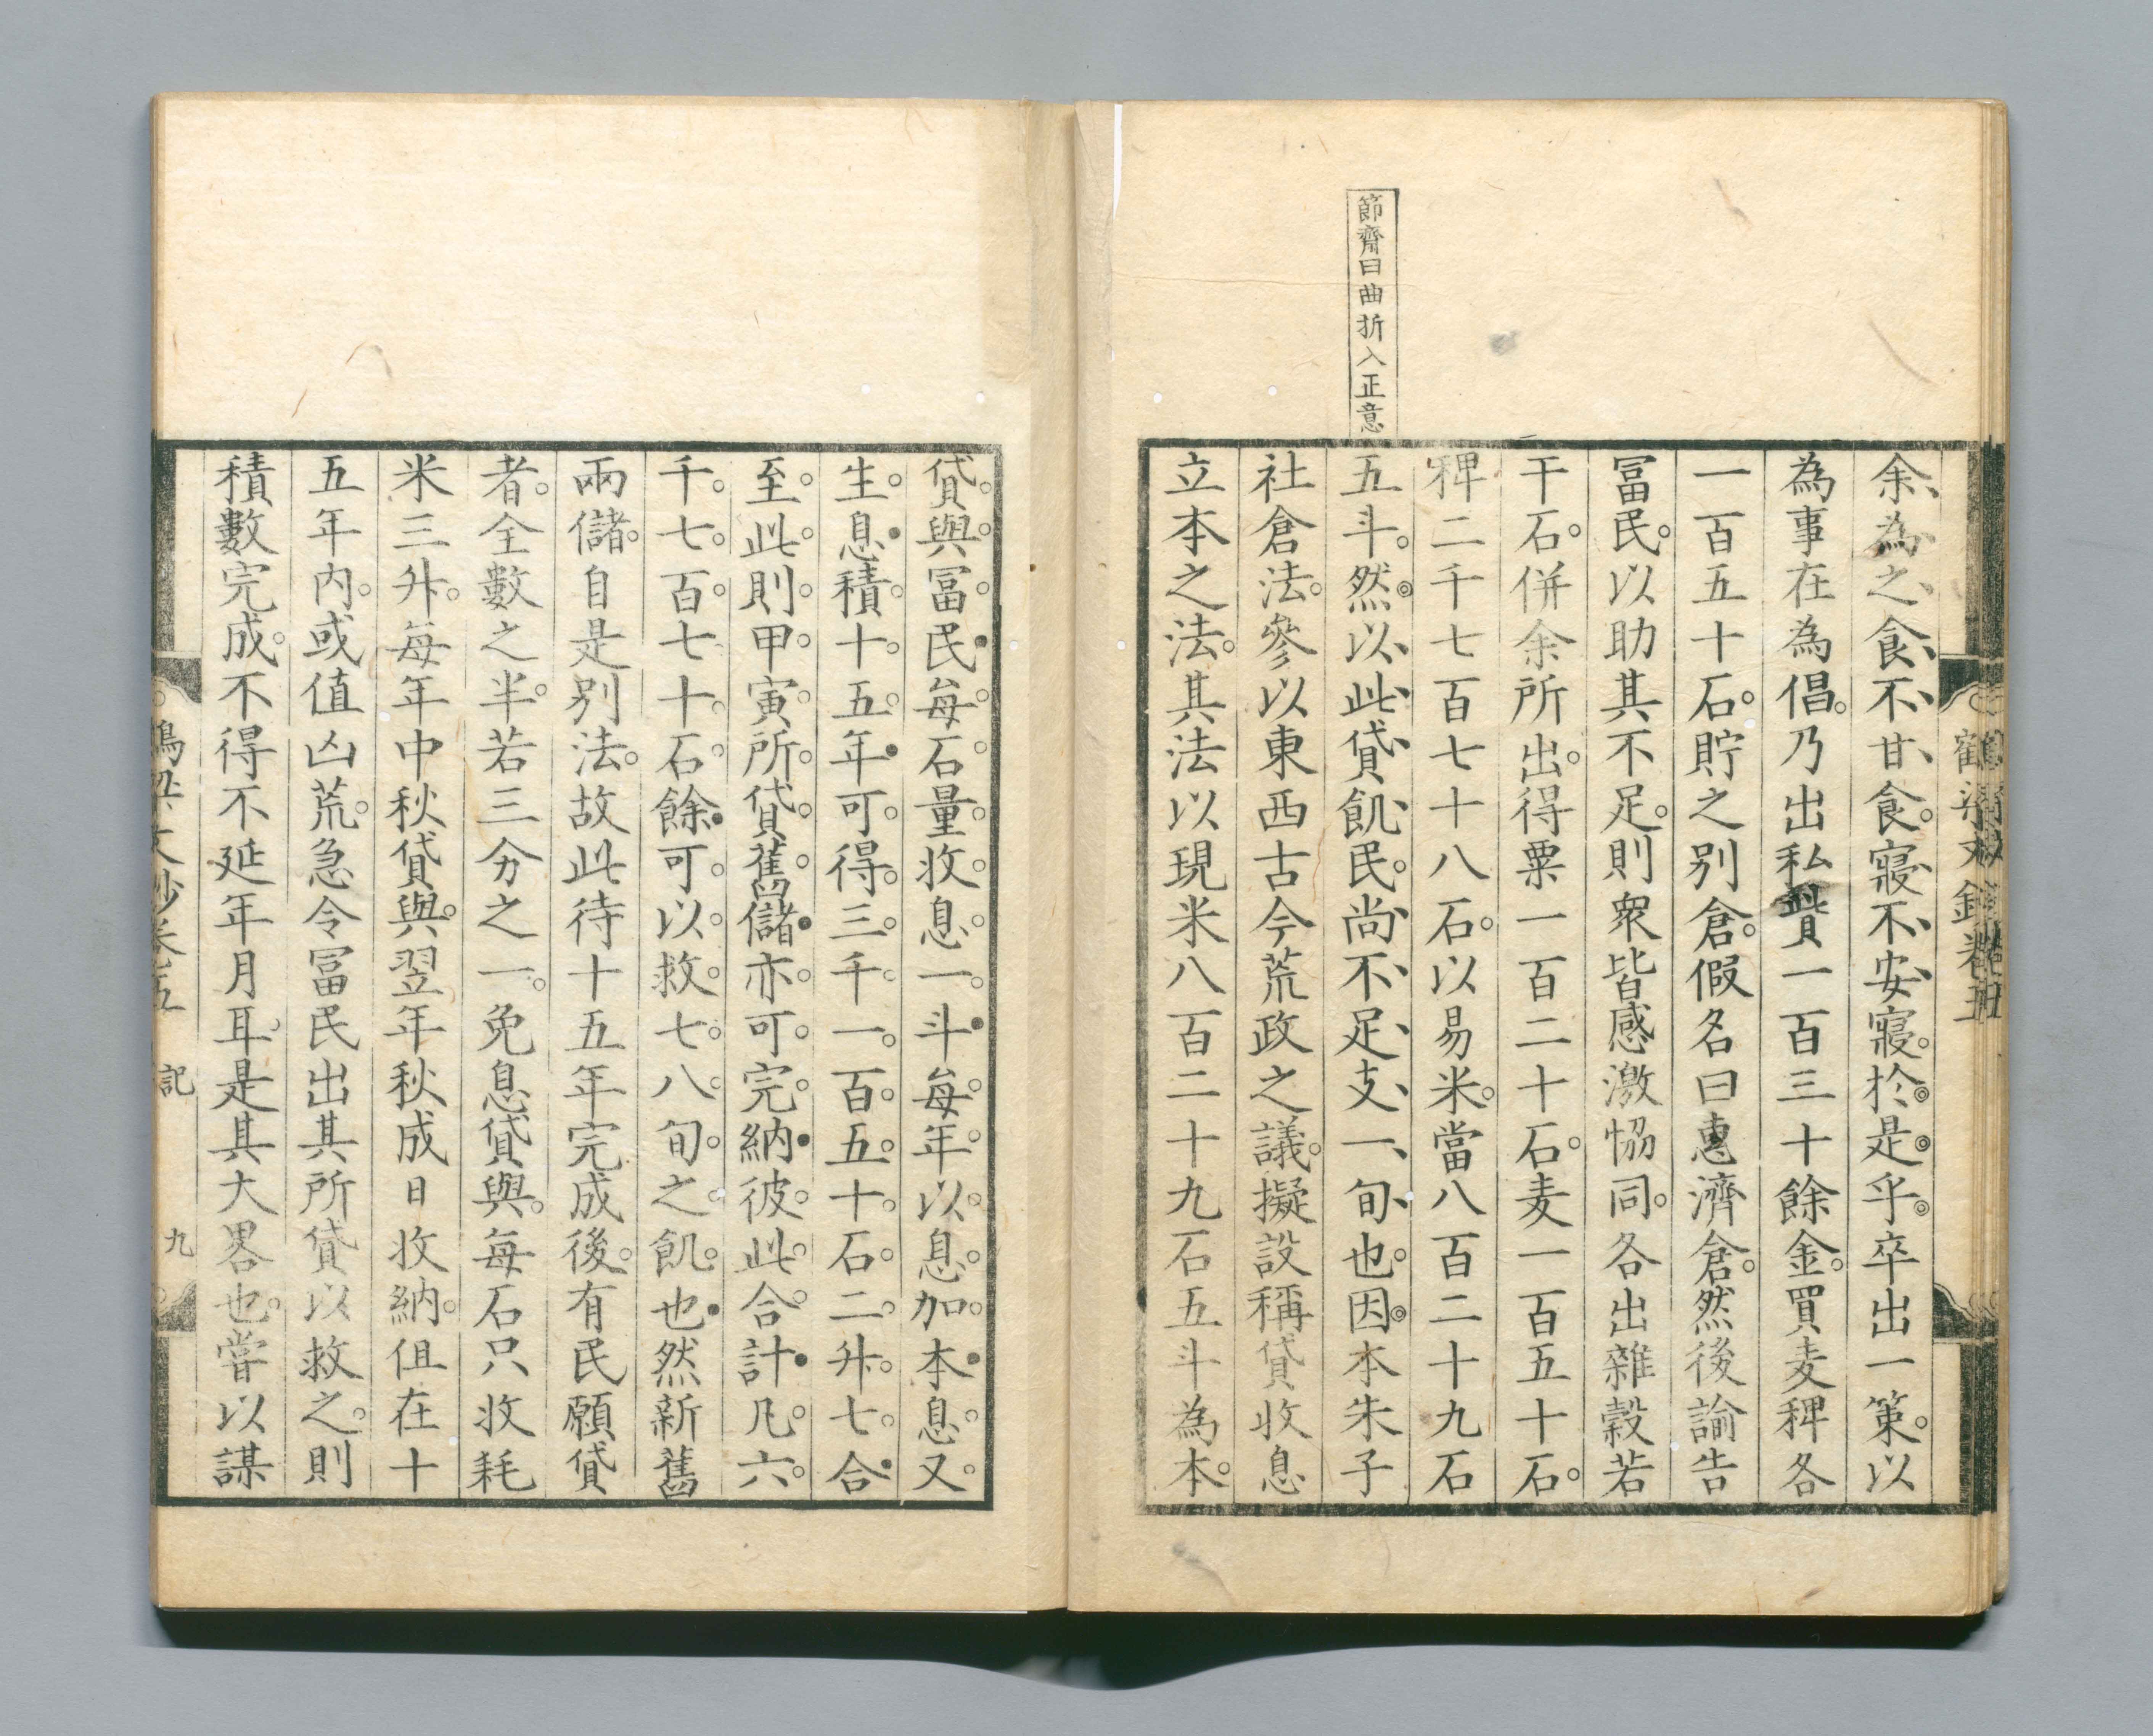 節齋曰曲折入正意
余為之食不甘食寢不安寢於是乎卒出一策以
為事在為倡乃出私貲一百三十餘金買麦稗各
一百五十石貯之别倉假名曰惠濟倉然後諭告
冨民以助其不足則衆皆感激恊同各出雜穀若
干石併余所出得粟一百二十石麦一百五十石
稗二千七百七十八石以易米當八百二十九石
五斗然以此貸飢民尚不足支一旬也因本朱子
社倉法參以東西古今荒政之議擬設稱貸收息
立本之法其法以現米八百二十九石五斗為本
貸與冨民每石量收息一斗每年以息加本息又
生息積十五年可得三千一百五十石二升七合
至此則甲寅所貸舊儲亦可完納彼此合計凡六
千七百七十石餘可以救七八旬之飢也然新舊
兩儲自是别法故此待十五年完成後有民願貸
者全數之半若三分之一免息貸與每石只收耗
米三升每年中秋貸與翌年秋成日收納但在十
五年内或值凶荒急令冨民出其所貸以救之則
積數完成不得不延年月耳是其大畧也嘗以謀
鶴梁文鈔卷五 記 九